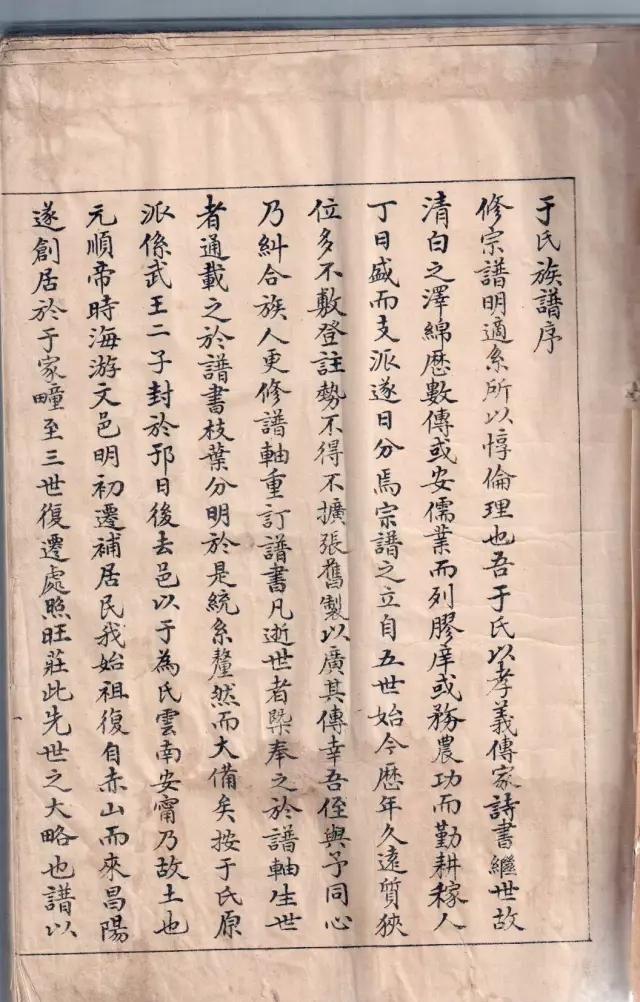 于氏族譜序
修宗譜明適系所以惇倫理也吾于氏以孝義傳家詩書繼世故
清白之澤綿歷數傳或安儒業而列膠庠或務農功而勤耕稼人
丁日盛而支派遂日分焉宗譜之立自五世始今歷年久遠質狹
位多不敷登註勢不得不擴張舊製以廣其傳幸吾侄與予同心
乃糾合族人更修譜軸重訂譜書凡逝世者槩奉之於譜軸生世
者通載之於譜書枝葉分明於是統系釐然而大備矣按于氏原
派係武王二子封於邘日後去邑以于為氏雲南安甯乃故土也
元順帝時海游文邑明初遷補居民我始祖復自赤山而來昌陽
遂創居於于家疃至三世復遷處照旺莊此先世之大略也譜以